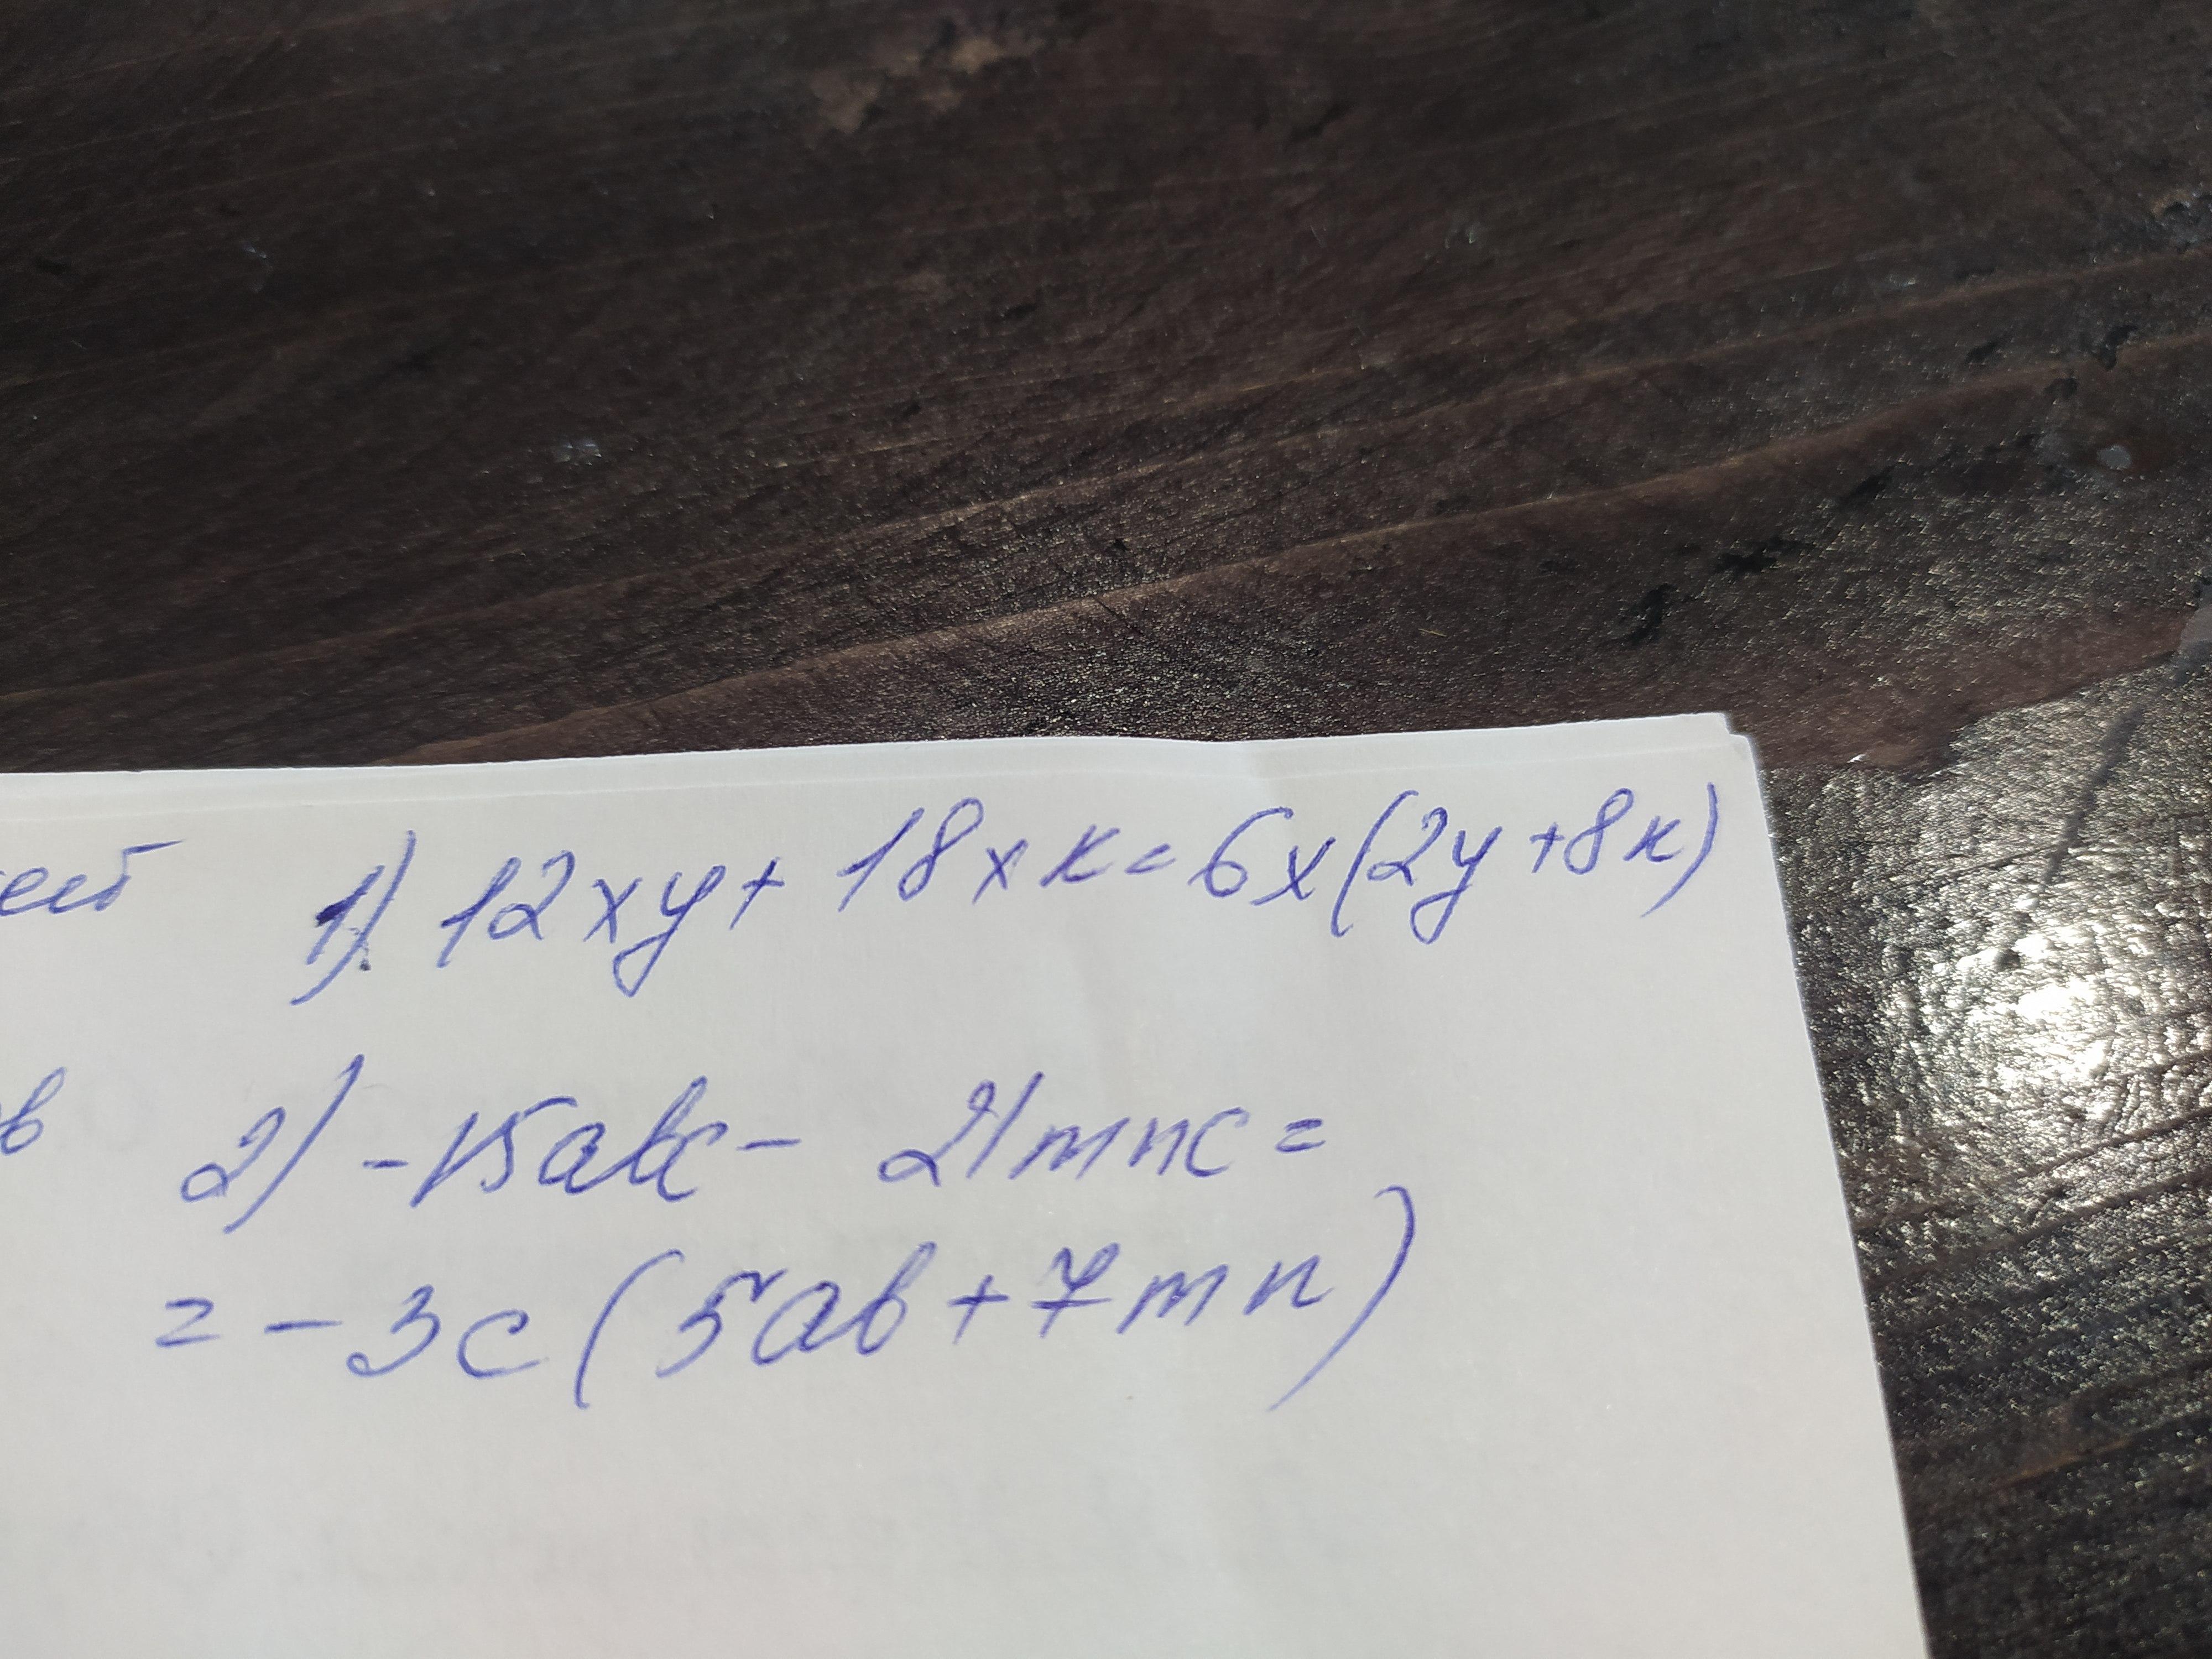 1) 12xy + 18xк = 6x(2y + 8к)
2) -15abc - 21mnc =
= -3c(5ab + 7mn)